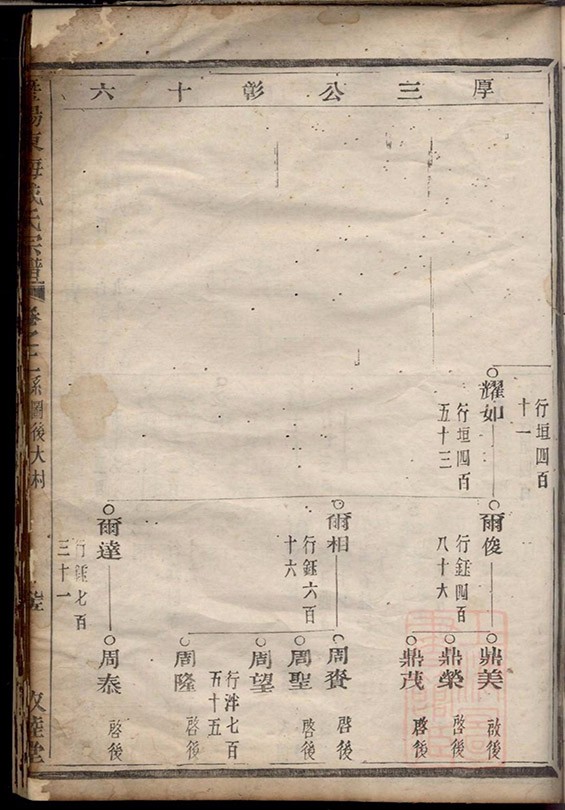 厚三公彰十六
行垣四百
十一
耀如
行垣四百
五十三
爾俊
行鈺四百
八十六
鼎美
啟後
鼎榮
啓後
鼎茂
啓後
爾相
行鈺六百
十六
周賚
啓後
周聖
啓後
周望
行泮七百
五十五
周隆
啓後
爾達
行鈺七百
三十一
周泰
啓後
東海
氏宗譜
卷之二
系圖後大村
敦睦堂